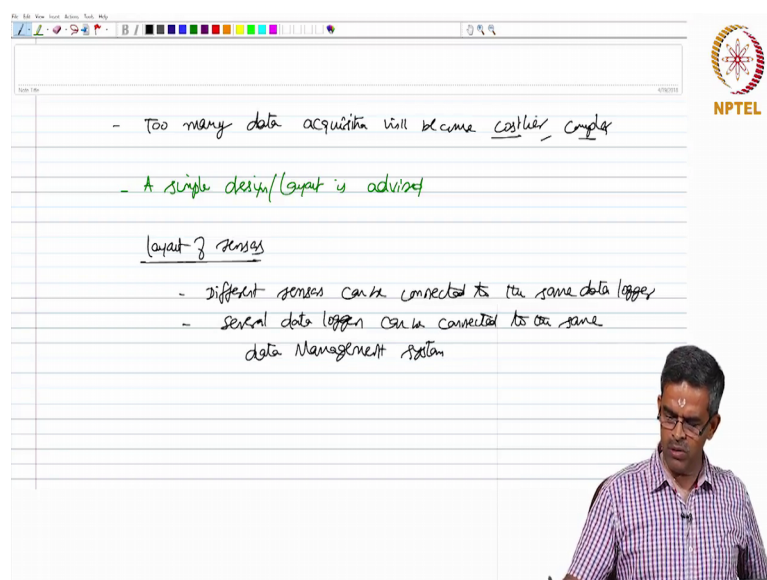 File Edit View Insert Actions Tools Help
B I
Note Title
4/19/2018
NPTEL
- Too many data acquisition will become costlier, complex
- A simple design/layout is advised
layout of sensors
- Different sensors can be connected to the same data logger
- several data loggers can be connected to the same
data Management system